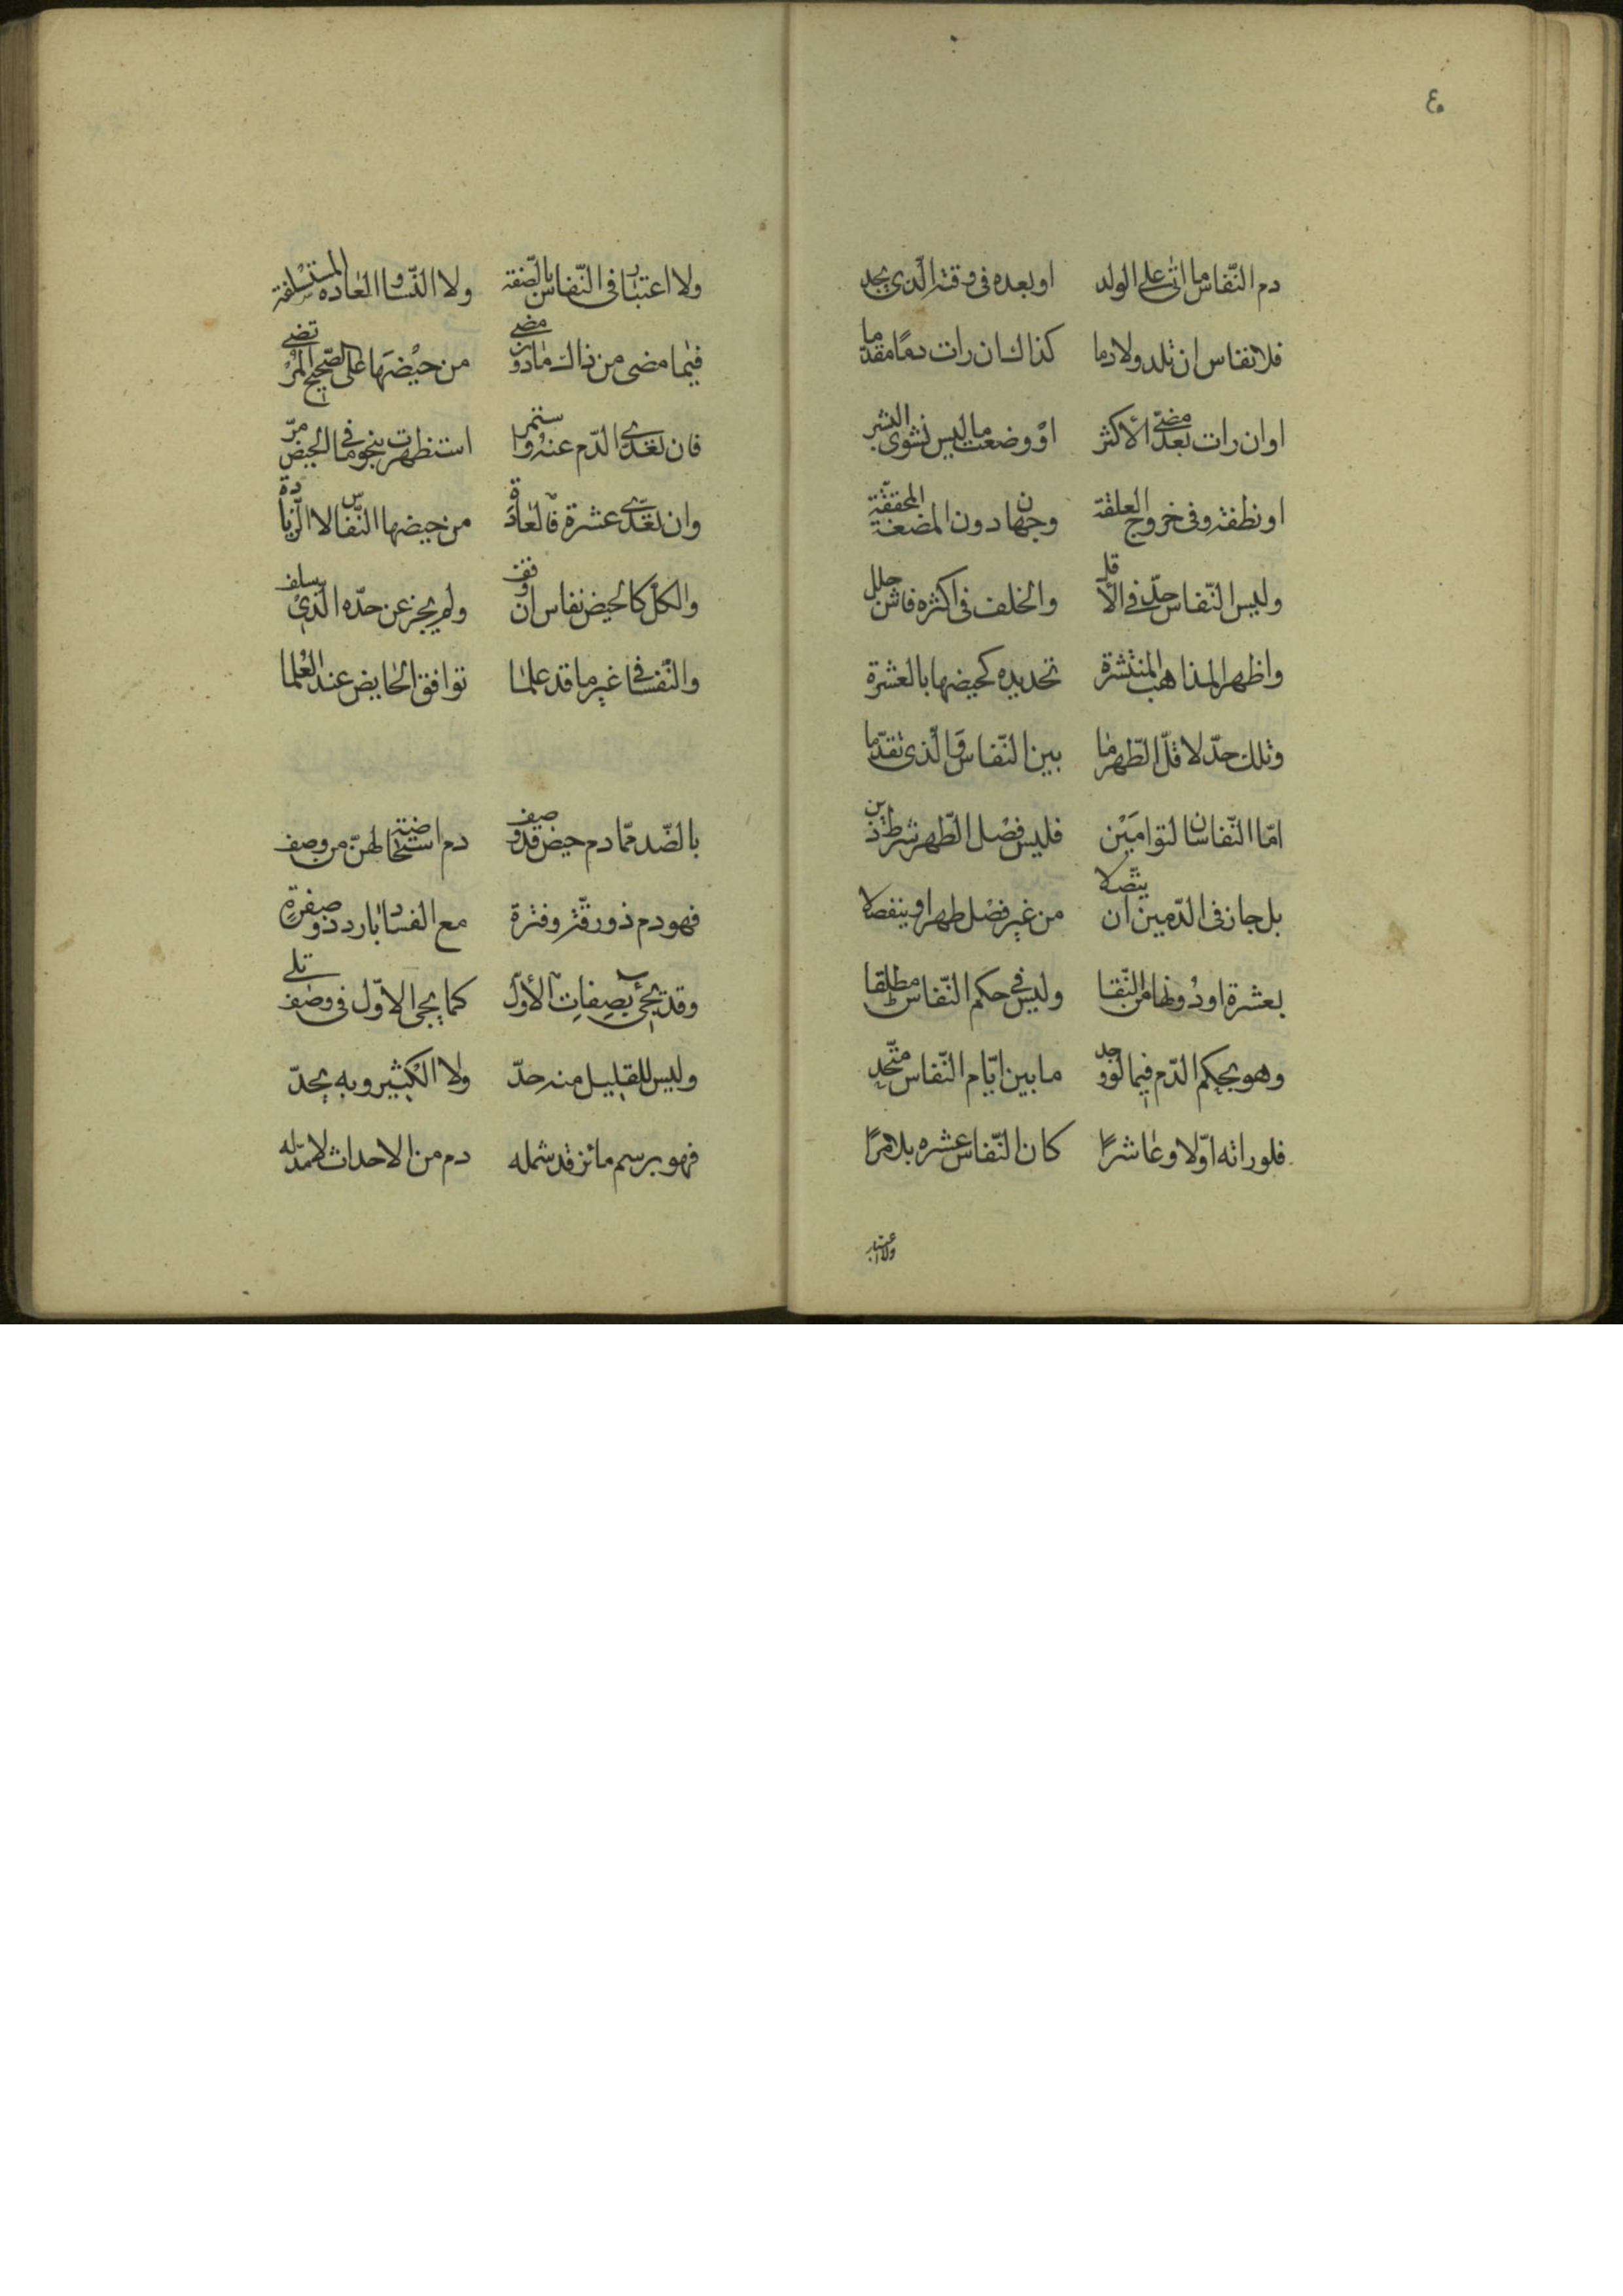 ٤٠
دم النّفاس ما اتى على الولد او بعده فى وقته الّذى يجد
فلا نفاس ان تلد ولا دما كذاك ان رات دمًا مقدما
او ان رات بعد مضىّ الاكثر او وضعت ما ليس نشوى البشر
او نطفة وفى خروج العلقة وجهان دون المضغة المحققة
وليس النّفاس حدّ فى الاقل والخلف فى اكثره فاش جلل
واظهر المذاهب المنتشرة تحديده كحيضها بالعشرة
وتلك حدّ لاقلّ الطّهر ما بين النّفاس والّذى تقدّما
امّا النّفاسان لتوامَيْن فليس فصْل الطّهر شرط ذين
بل جاز فى الدّمين ان يتّصلا من غير فصْل طهر او ينفصلا
بعشرة او دونها من النّقا وليس فى حكم النّفاس مطلقا
وهو بحكم الدّم فيما لو وجد ما بين ايّام النّفاس متّحد
فلو راته اوّلا وعاشرًا كان النّفاس عشره بلا مرًا
ولا اعتبار
ولا اعتبار فى النّفاس بالصّفة ولا التّساوى العاده المستسلفة
فيما مضى من ذاك ما دون مضى من حيْضهَا على الصّحيح المرتضى
فان تعدّى الدّم عنه واستمر استظهرت بنجو ما فى الحيض مرّ
وان تعدّى عشرة فالعادة من حيضها النّفاس لا الزّيادة
والكلّ كالحيض نفاس ان وقف ولم يجز عن حدّه الّذى سلف
والنّفسا فى غير ما قد علما توافق الحايض عند العُلما
بالضّد ممّا دم حيض قد وصف دم استحاضة لهنّ من وصف
فهو دم ذو رقّة وفترة مع الفساد بارد ذو صفرةٍ
وقد يجئ بصِفاتِ الأوّل كما يجى الاوّل فى وصف تلى
وليس للقليل منه حدّ ولا الكثير وبه يحدّ
فهو برسم مائز قد شمله دم من الاحداث لا مدّ له